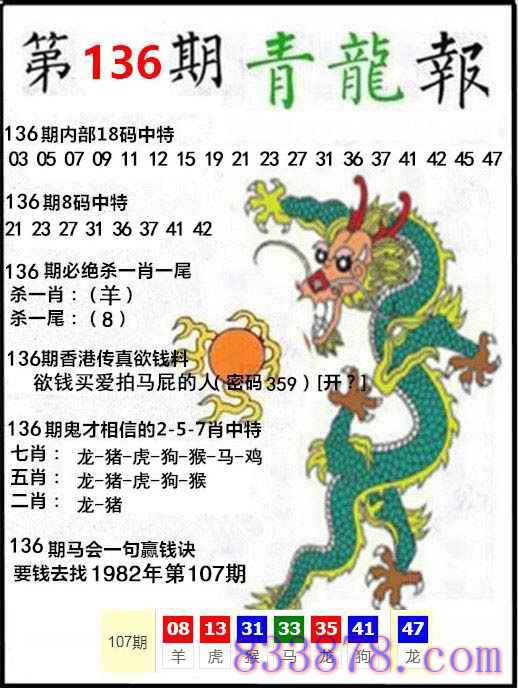 第136期青龍報
136期内部18码中特
03 05 07 09 11 12 15 19 21 23 27 31 36 37 41 42 45 47
136期8码中特
21 23 27 31 36 37 41 42
136期必绝杀一肖一尾
杀一肖：（羊）
杀一尾：（8）
136期香港传真欲钱料
欲钱买爱拍马屁的人（密码359）[开？]
136期鬼才相信的2-5-7肖中特
七肖：龙-猪-虎-狗-猴-马-鸡
五肖：龙-猪-虎-狗-猴
二肖：龙-猪
136期马会一句赢钱诀
要钱去找1982年第107期
107期 08 13 31 33 35 41 47
羊 虎 猴 马 龙 狗 龙
833878.com